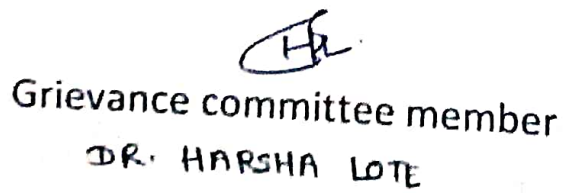 Grievance committee member
DR. HARSHA LOTE